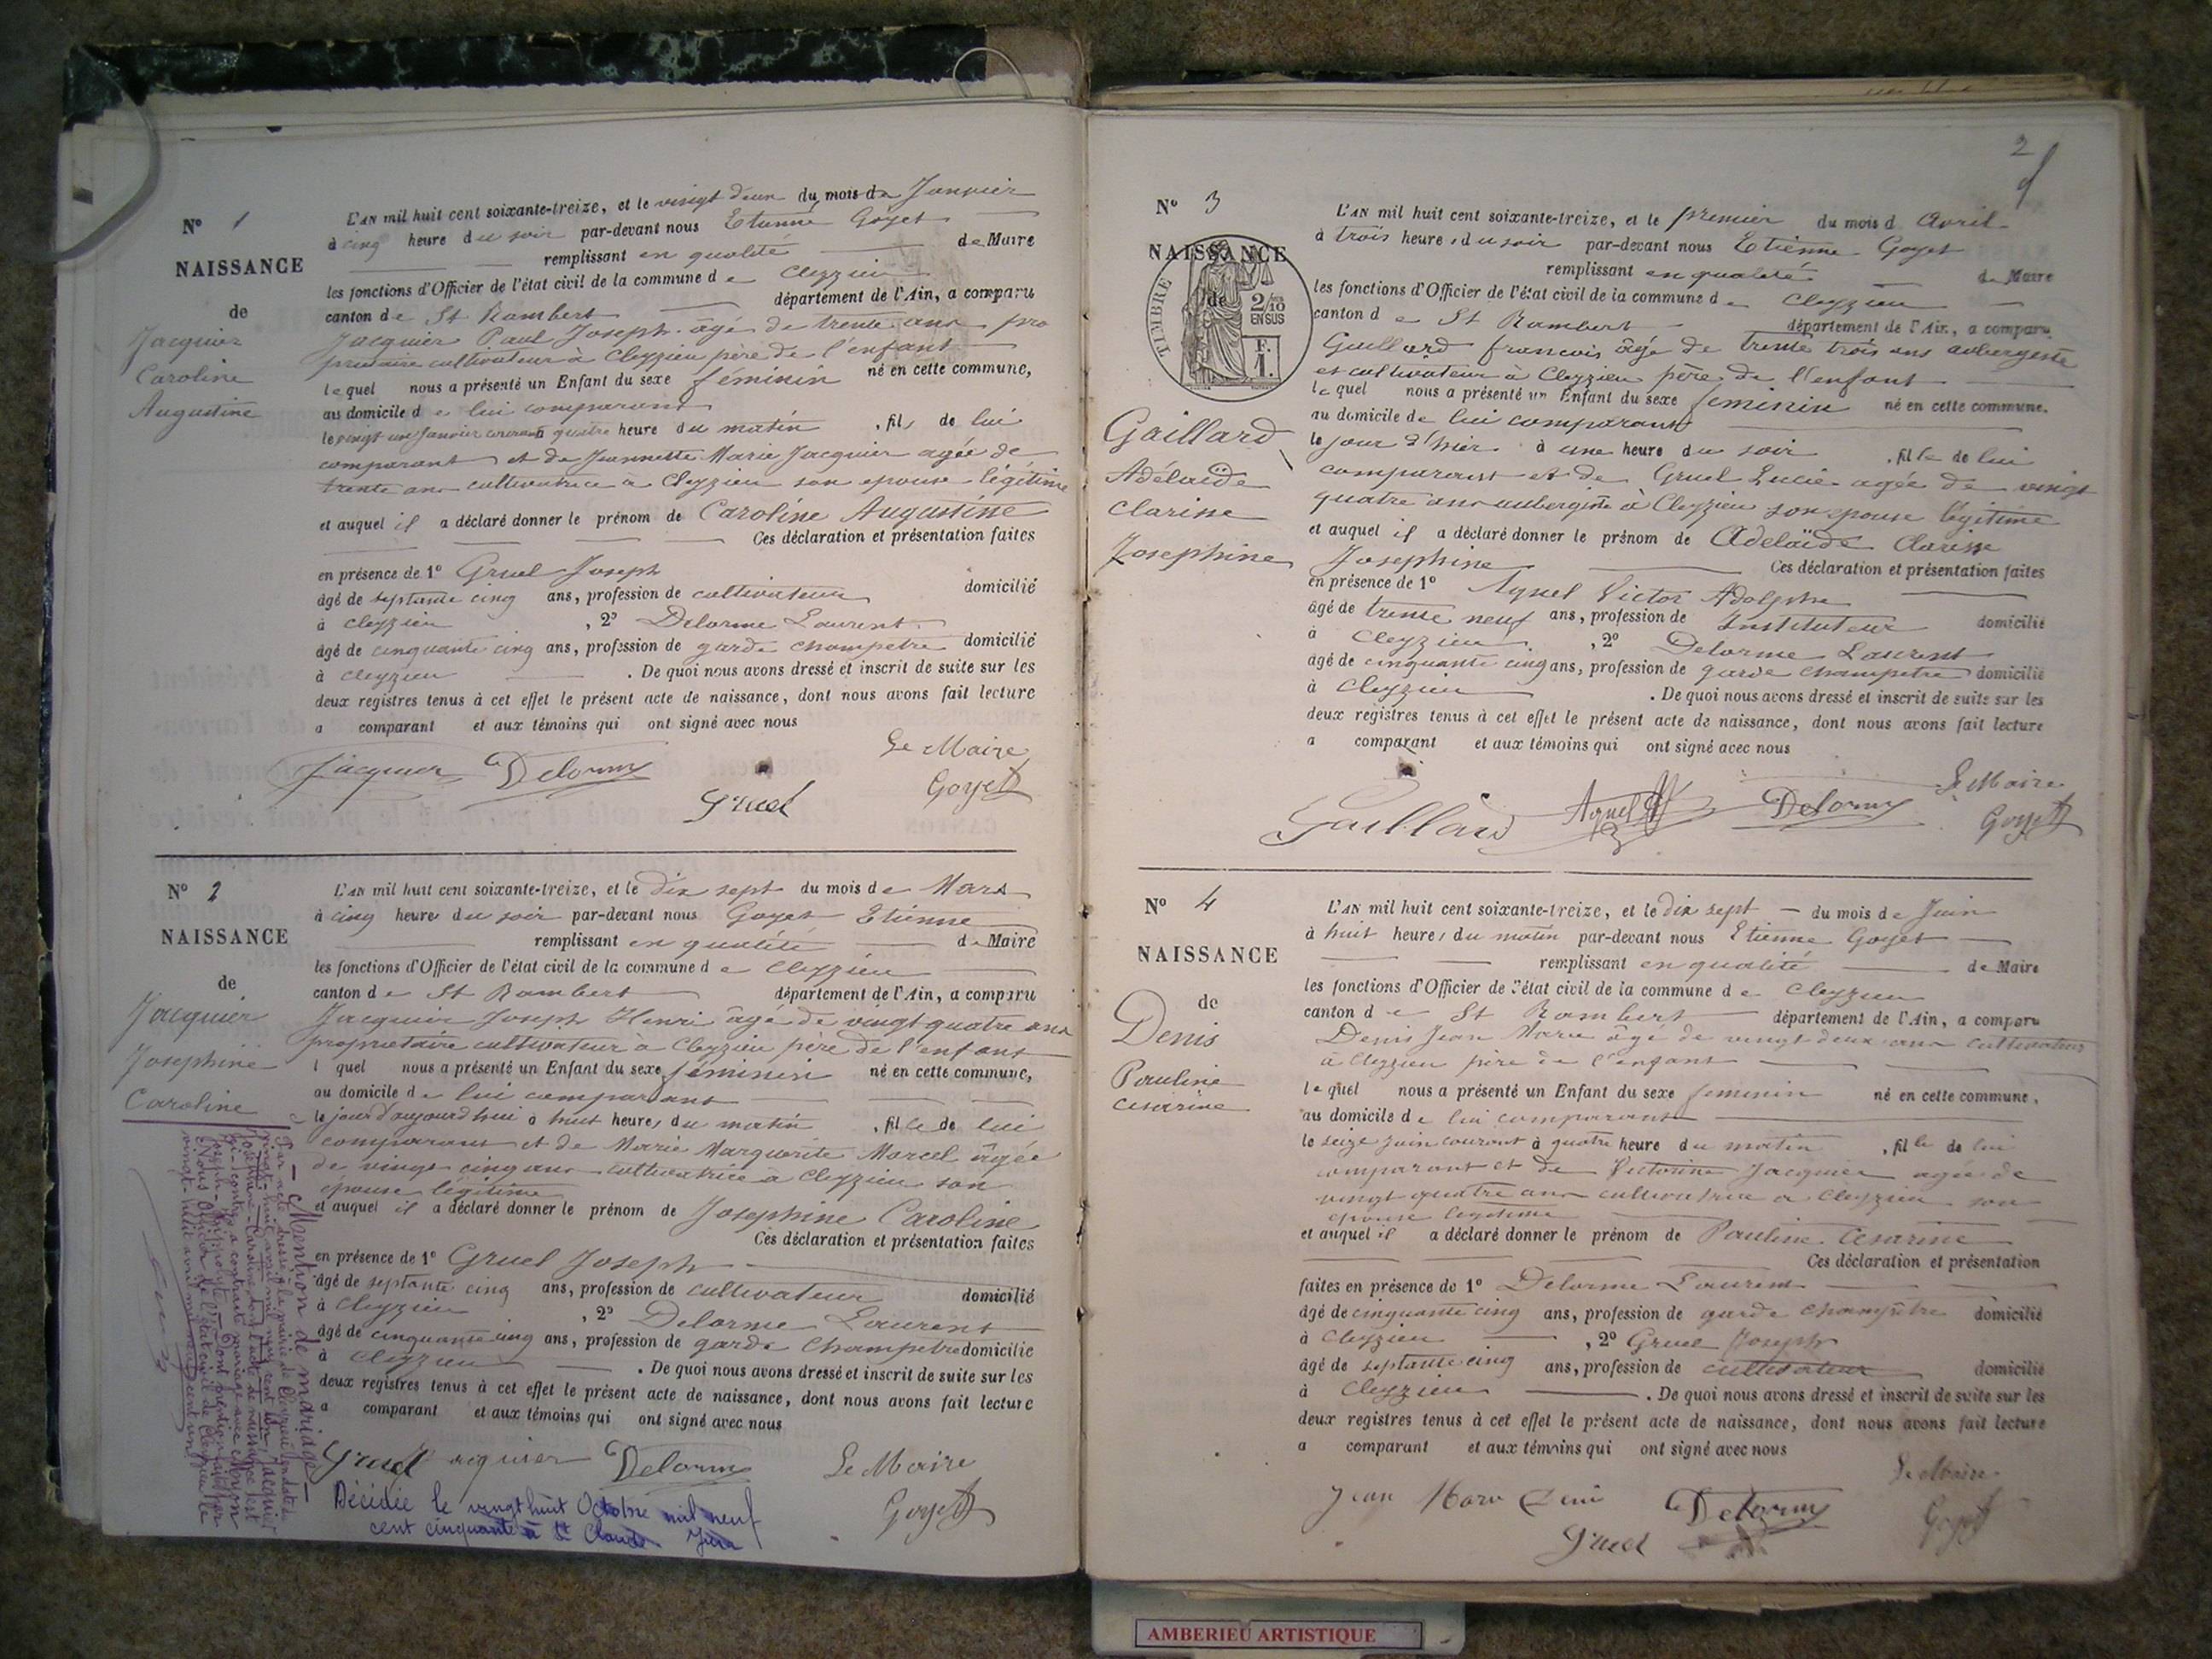 N° 1
NAISSANCE
de
Jacquier
Caroline
Augustine
L'AN mil huit cent soixante-treize, et le vingt deux du mois de Janvier
à cinq heure du soir par-devant nous Etienne Goyet
remplissant en qualité de Maire
les fonctions d'Officier de l'état civil de la commune de Cleyzieu
canton de St Rambert département de l'Ain, a comparu
Jacquier Paul Joseph âgé de trente ans pro
priétaire cultivateur à Cleyzieu père de l'enfant
lequel nous a présenté un Enfant du sexe féminin né en cette commune,
au domicile de lui comparant
le vingt un Janvier courant à quatre heure du matin , fil de lui
comparant et de Jeannette Marie Jacquier agée de
trente ans cultivatrice a Cleyzieu son epouse légitime
et auquel il a déclaré donner le prénom de Caroline Augustine
Ces déclaration et présentation faites
en présence de 1° Gruel Joseph
âgé de septante cinq ans, profession de cultivateur domicilié
à Cleyzieu , 2° Delorme Laurent
âgé de cinquante cinq ans, profession de garde champetre domicilié
à Cleyzieu . De quoi nous avons dressé et inscrit de suite sur les
deux registres tenus à cet effet le présent acte de naissance, dont nous avons fait lecture
a comparant et aux témoins qui ont signé avec nous
Le Maire
Jacquier Delorme Goyet
Gruel
N° 2
NAISSANCE
de
Jacquier
Josephine
Caroline
L'AN mil huit cent soixante-treize, et le dix sept du mois de Mars
à cinq heure du soir par-devant nous Goyet Etienne
remplissant en qualité de Maire
les fonctions d'Officier de l'état civil de la commune de Cleyzieu
canton de St Rambert département de l'Ain, a comparu
Jacquier Joseph Henri âgé de vingt quatre ans
propriétaire cultivateur à Cleyzieu père de l'enfant
l quel nous a présenté un Enfant du sexe féminin né en cette commune,
au domicile de lui comparant
le jour d'aujourd'hui à huit heures du matin , fille de lui
comparant et de Marie Marguerite Marcel âgée
de vingt cinq ans cultivatrice à Cleyzieu son
épouse légitime
et auquel il a déclaré donner le prénom de Josephine Caroline
Ces déclaration et présentation faites
en présence de 1° Gruel Joseph
âgé de septante cinq ans, profession de cultivateur domicilié
à Cleyzieu , 2° Delorme Laurent
âgé de cinquante cinq ans, profession de garde Champetre domicilié
à Cleyzieu . De quoi nous avons dressé et inscrit de suite sur les
deux registres tenus à cet effet le présent acte de naissance, dont nous avons fait lecture
a comparant et aux témoins qui ont signé avec nous
Gruel Jacquier Delorme Le Maire
Goyet
Décédée le vingt huit Octobre mil neuf
cent cinquante à St Claude Jura
Mention de mariage
Par acte dressé à la mairie de Cleyzieu
vingt-huit avril mil neuf cent un, Jacquier
Joséphine Caroline dont l'acte de naissance est
ci-contre a contracté mariage avec
Joseph Hippolyte. Dont mention faite par
Nous Officier de l'état civil de Cleyzieu le
vingt-huit avril mil neuf cent un
2
N° 3
NAISSANCE
de
TIMBRE
2/10
EN SUS
F.
1.
Gaillard
Adélaïde
Clarisse
Josephine
L'AN mil huit cent soixante-treize, et le premier du mois d Avril
à trois heures du soir par-devant nous Etienne Goyet
remplissant en qualité de Maire
les fonctions d'Officier de l'état civil de la commune de Cleyzieu
canton de St Rambert département de l'Ain, a comparu
Gaillard francois âgé de trente trois ans aubergiste
et cultivateur à Cleyzieu père de l'enfant
lequel nous a présenté un Enfant du sexe féminin né en cette commune.
au domicile de lui comparant
le jour d'hier à une heure du soir , fille de lui
comparant et de Gruel Lucie agée de vingt
quatre ans aubergiste à Cleyzieu son epouse légitime
et auquel il a déclaré donner le prénom de Adelaïde Clarisse
Josephine Ces déclaration et présentation faites
en présence de 1° Aguel Victor Adolphe
âgé de trente neuf ans, profession de Instituteur domicilié
à Cleyzieu , 2° Delorme Laurent
âgé de cinquante cinq ans, profession de garde champetre domicilié
à Cleyzieu . De quoi nous avons dressé et inscrit de suite sur les
deux registres tenus à cet effet le présent acte de naissance, dont nous avons fait lecture
a comparant et aux témoins qui ont signé avec nous
Le Maire
Gaillard Aguel Delorme Goyet
N° 4
NAISSANCE
de
Denis
Pauline
Cesarine
L'AN mil huit cent soixante-treize, et le dix sept du mois de Juin
à huit heures du matin par-devant nous Etienne Goyet
remplissant en qualité de Maire
les fonctions d'Officier de l'état civil de la commune de Cleyzieu
canton de St Rambert département de l'Ain, a comparu
Denis Jean Marie âgé de vingt deux ans cultivateur
à Cleyzieu père de l'enfant
lequel nous a présenté un Enfant du sexe feminin né en cette commune,
au domicile de lui comparant
le seize juin courant à quatre heure du matin , fille de lui
comparant et de Victorine Jacquier agée de
vingt quatre ans cultivatrice a Cleyzieu son
epouse legitime
et auquel il a déclaré donner le prénom de Pauline Cesarine
Ces déclaration et présentation
faites en présence de 1° Delorme Laurent
âgé de cinquante cinq ans, profession de garde champêtre domicilié
à Cleyzieu , 2° Gruel Joseph
âgé de septante cinq ans, profession de cultivateur domicilié
à Cleyzieu . De quoi nous avons dressé et inscrit de suite sur les
deux registres tenus à cet effet le présent acte de naissance, dont nous avons fait lecture
a comparant et aux témoins qui ont signé avec nous
Le Maire
Jean Mari Deni Delorme Goyet
Gruel
AMBERIEU ARTISTIQUE